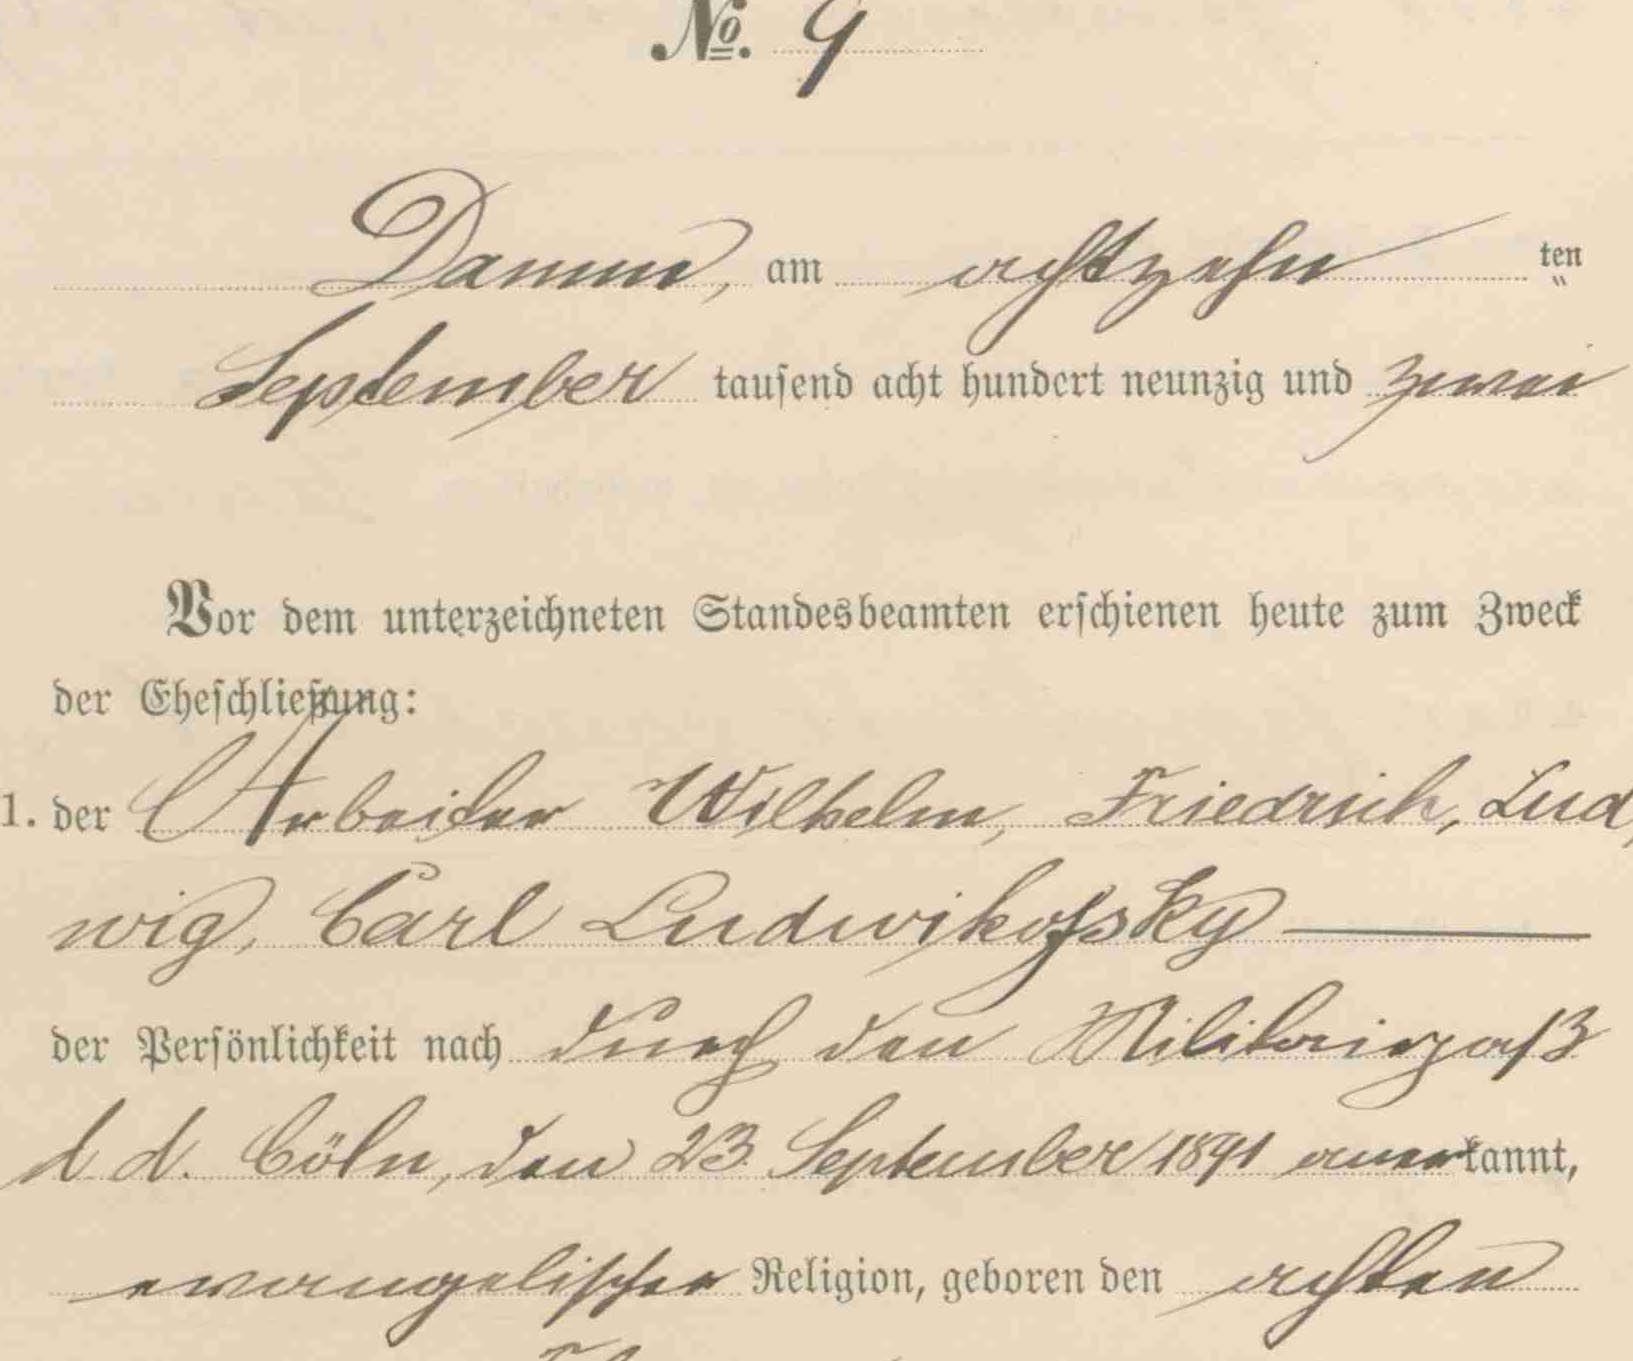 No. 9
Damm, am achtzehn ten
September tausend acht hundert neunzig und zwei
Vor dem unterzeichneten Standesbeamten erschienen heute zum Zweck
der Eheschließung:
1. der Arbeiter Wilhelm, Friedrich, Lud,
wig, Carl Ludwikofsky
der Persönlichkeit nach durch den Militairpaß
d. d. Cöln, den 23. September 1891 anerkannt,
evangelischer Religion, geboren den achten